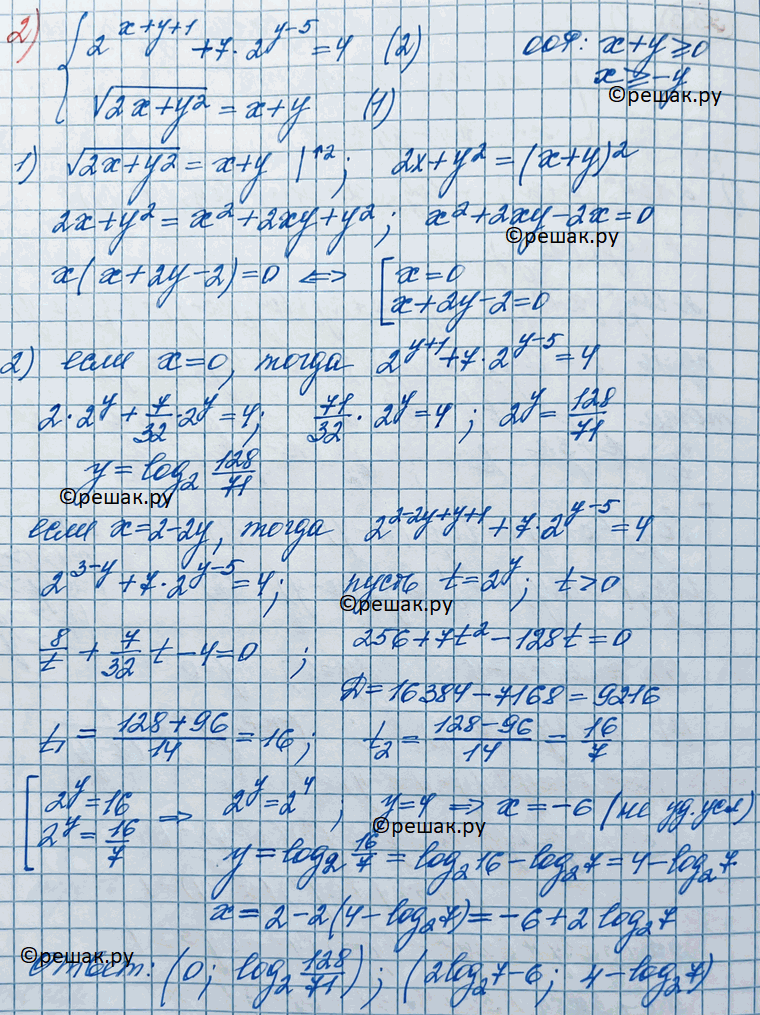 2) { 2^{x+y+1} + 7·2^{y-5} = 4 (2) ООФ: x+y⩾0
x⩾-y
©решак.ру
√(2x+y²) = x+y (1)
1) √(2x+y²) = x+y |↑2; 2x+y² = (x+y)²
2x+y² = x²+2xy+y²; x²+2xy-2x=0
©решак.ру
x(x+2y-2)=0 ⇔ [ x=0
x+2y-2=0
2) если x=0, тогда 2^{y+1}+7·2^{y-5}=4
2·2^y + 7/32·2^y = 4; 71/32·2^y = 4; 2^y = 128/71
y = log₂ 128/71
©решак.ру
если x=2-2y, тогда 2^{2-2y+y+1}+7·2^{y-5}=4
2^{3-y}+7·2^{y-5}=4; пусть t=2^y; t>0
©решак.ру
8/t + 7/32 t - 4 = 0; 256+7t²-128t=0
D=16384-7168=9216
t₁ = (128+96)/14 = 16; t₂ = (128-96)/14 = 16/7
[ 2^y=16 ⇒ 2^y=2^4; y=4 ⇒ x=-6 (не уд. усл)
2^y=16/7
©решак.ру
y = log₂ 16/7 = log₂16 - log₂7 = 4 - log₂7
x = 2-2(4-log₂7) = -6+2log₂7
©решак.ру
Ответ: (0; log₂ 128/71); (2log₂7-6; 4-log₂7)